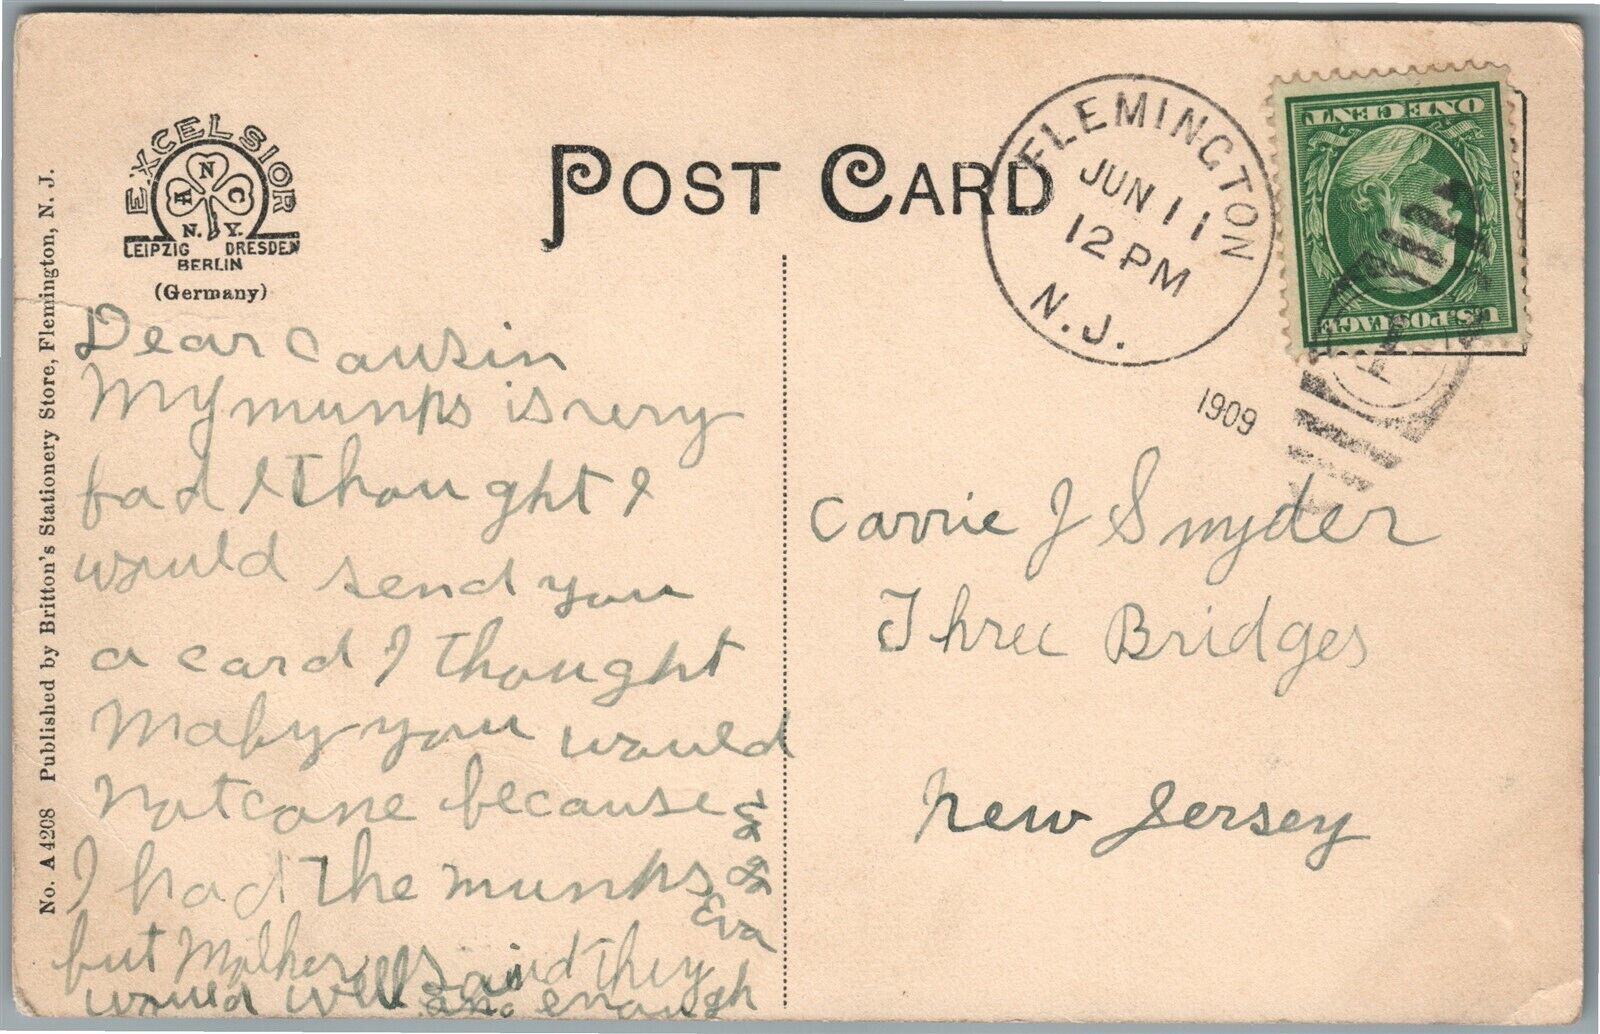 EXCELSIOR
A N C
N. Y.
LEIPZIG DRESDEN
BERLIN
(Germany)
POST CARD
FLEMINGTON
JUN 11
12 PM
N.J.
1909
ONE CENT
U.S. POSTAGE
No. A 4208 Published by Britton's Stationery Store, Flemington, N. J.
Dear Cousin
My mumps is very
bad I thought I
would send you
a card I thought
Maby you would
not come because
I had the mumps
but Mother said they
would well enough
Eva
Carrie J Snyder
Three Bridges
New Jersey